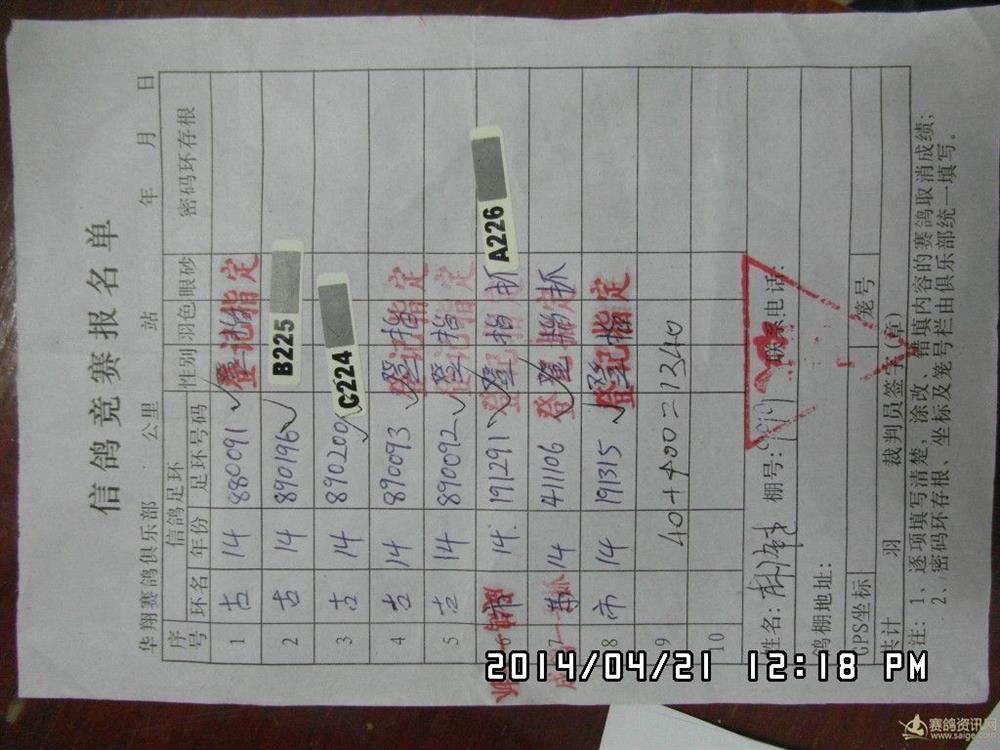 信鸽竞赛报名单
华翔赛鸽俱乐部 公里 站 年 月 日
序号 信鸽足环 性别 羽色 眼砂 密码环存根
环名 年份 足环号码
1 古 14 880091 登记指定
2 古 14 890196 B225
3 古 14 890200 C224
4 古 14 890093 登记指定
5 古 14 890092 登记指定
6 市 14. 191291 A226
7 14 411106
8 市 14 191315 登记指定
9
10
姓名: 棚号: 联系电话:
鸽棚地址:
GPS坐标 笼号
共计 羽 裁判员签字(章)
注: 1、逐项填写清楚, 涂改、错填内容的赛鸽取消成绩;
2、密码环存根、坐标及笼号栏由俱乐部统一填写。
2014/04/21 12:18 PM
赛鸽资讯网
www.saige.com